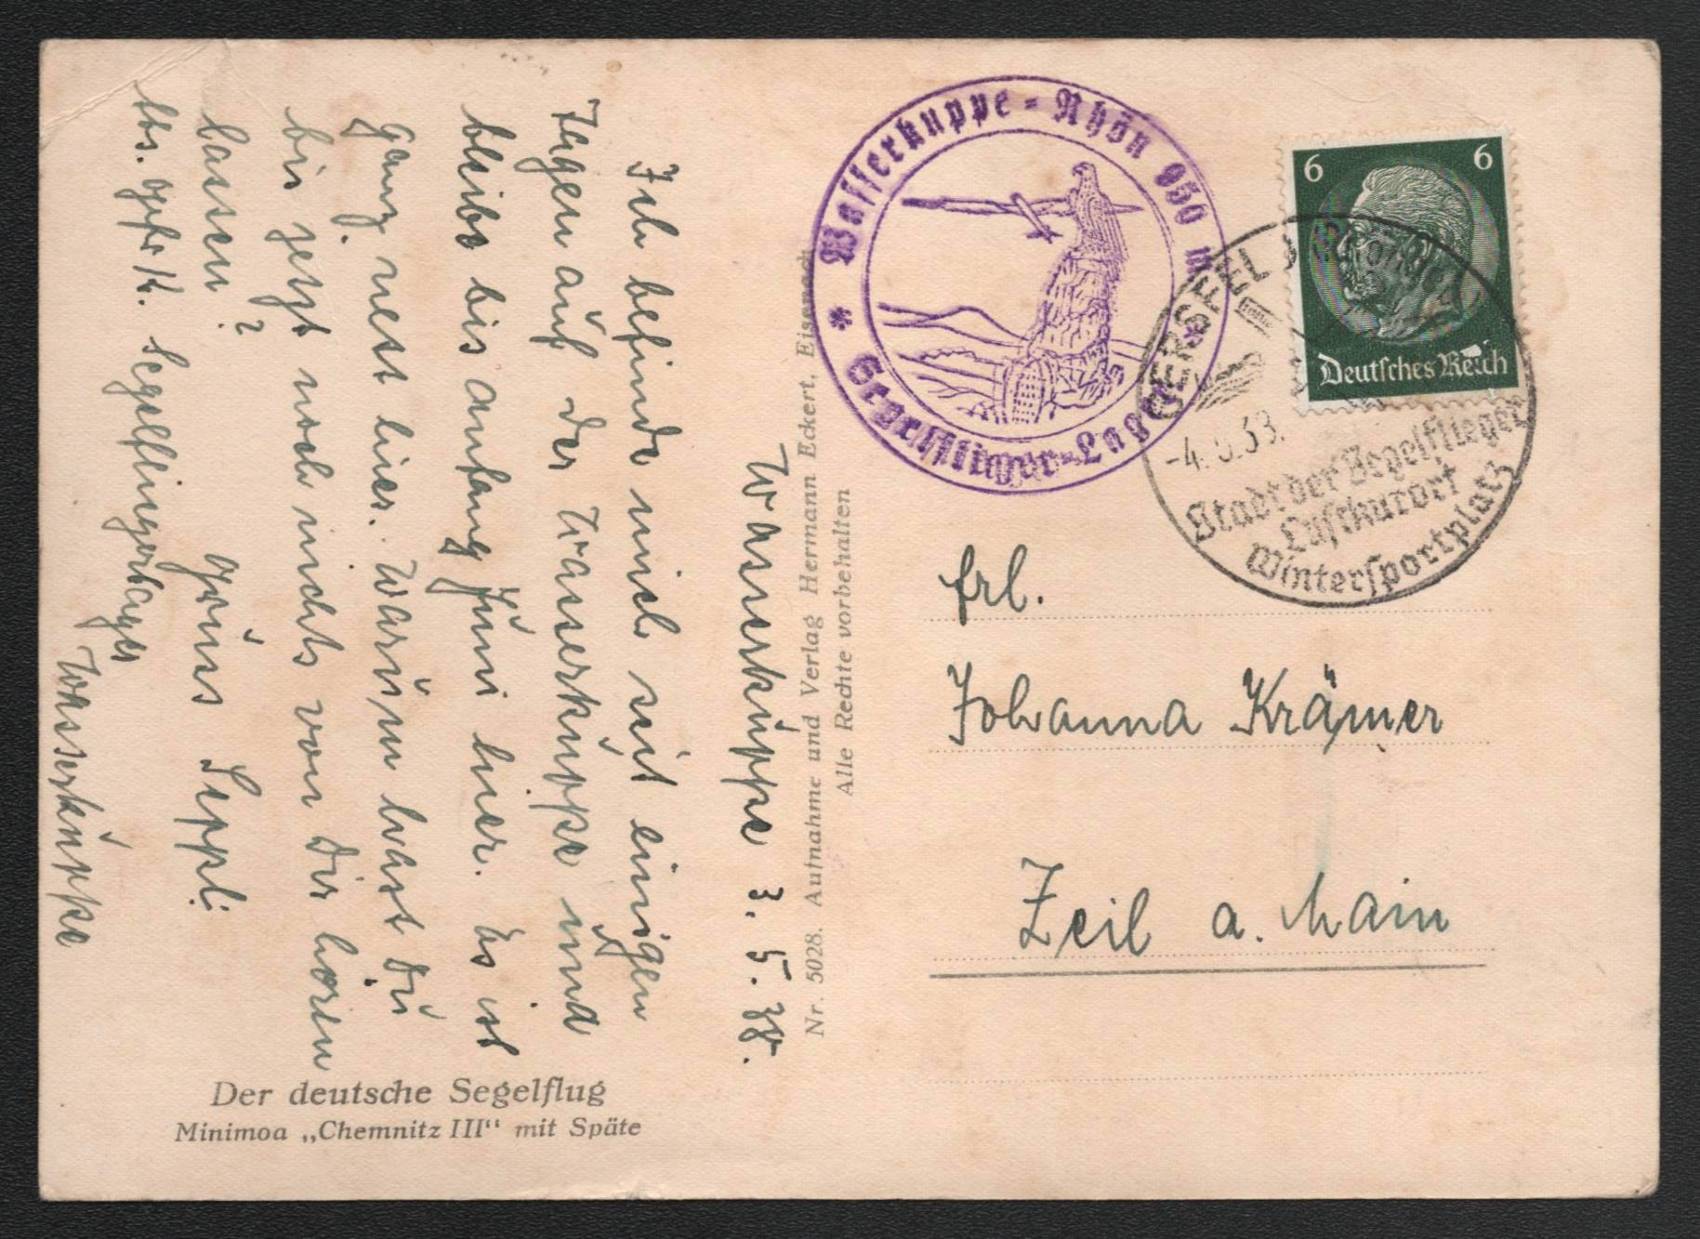 Wasserkuppe 3. 5. 38.
Ich befinde mich seit einigen
Tagen auf der Wasserkuppe und
bleibe bis anfang Juni hier. Es ist
ganz nett hier. Warum hast Du
bis jetzt noch nichts von Dir hören
lassen?
Gruss Seppl.
Segelfliegerlager
Wasserkuppe
Der deutsche Segelflug
Minimoa „Chemnitz III“ mit Späte
Nr. 5028. Aufnahme und Verlag Hermann Eckert, Eisenach
Alle Rechte vorbehalten
Wasserkuppe - Rhön 950 m
* Segelflieger-Lager *
6 6
Deutsches Reich
GERSFELD (Rhön)
Stadt der Segelflieger
Luftkurort
Wintersportplatz
Frl.
Johanna Krämer
Zeil a. Main